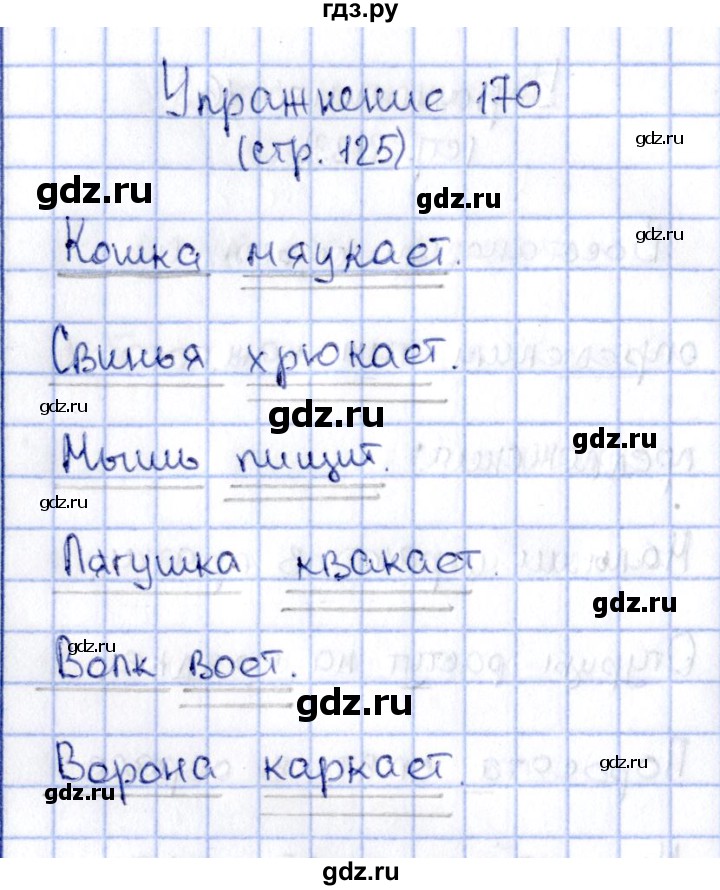 гдз.ру
Упражнение 170
gdz.ru
(стр. 125)
gdz.ru
gdz.ru
gdz.ru
Кошка мяукает.
Свинья хрюкает.
gdz.ru
gdz.ru
gdz.ru
Мышь пищит.
gdz.ru
Лягушка квакает.
gdz.ru
gdz.ru
Волк воет.
gdz.ru
Ворона каркает.
gdz.ru
gdz.ru
gdz.ru